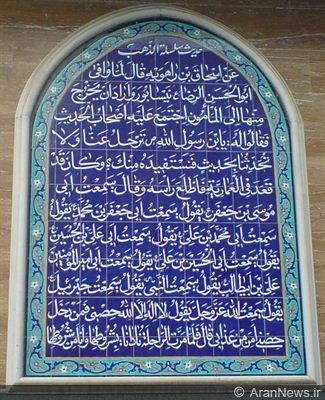 حدیث سلسلة الذهب
عن اسحاق بن راهویه قال لما وافی
ابوالحسن الرضا نیسابور واراد ان یخرج
منها الی المأمون اجتمع علیه اصحاب الحدیث
فقالوا له یابن رسول الله ترحل عنا ولا
تحدثنا بحدیث فنستفیده منک وکان قد
قعد فی العماریة فاطلع رأسه وقال سمعت ابی
موسی بن جعفر یقول سمعت ابی جعفر بن محمد یقول
سمعت ابی محمد بن علی یقول سمعت ابی علی بن الحسین
یقول سمعت ابی الحسین بن علی یقول سمعت ابی امیرالمؤمنین
علی بن ابیطالب یقول سمعت النبی یقول سمعت جبرئیل
یقول سمعت الله عزوجل یقول لا اله الا الله حصنی فمن دخل
حصنی امن من عذابی قال فلما مرت الراحلة نادانا بشروطها وانا من شروطها
© AranNews.ir